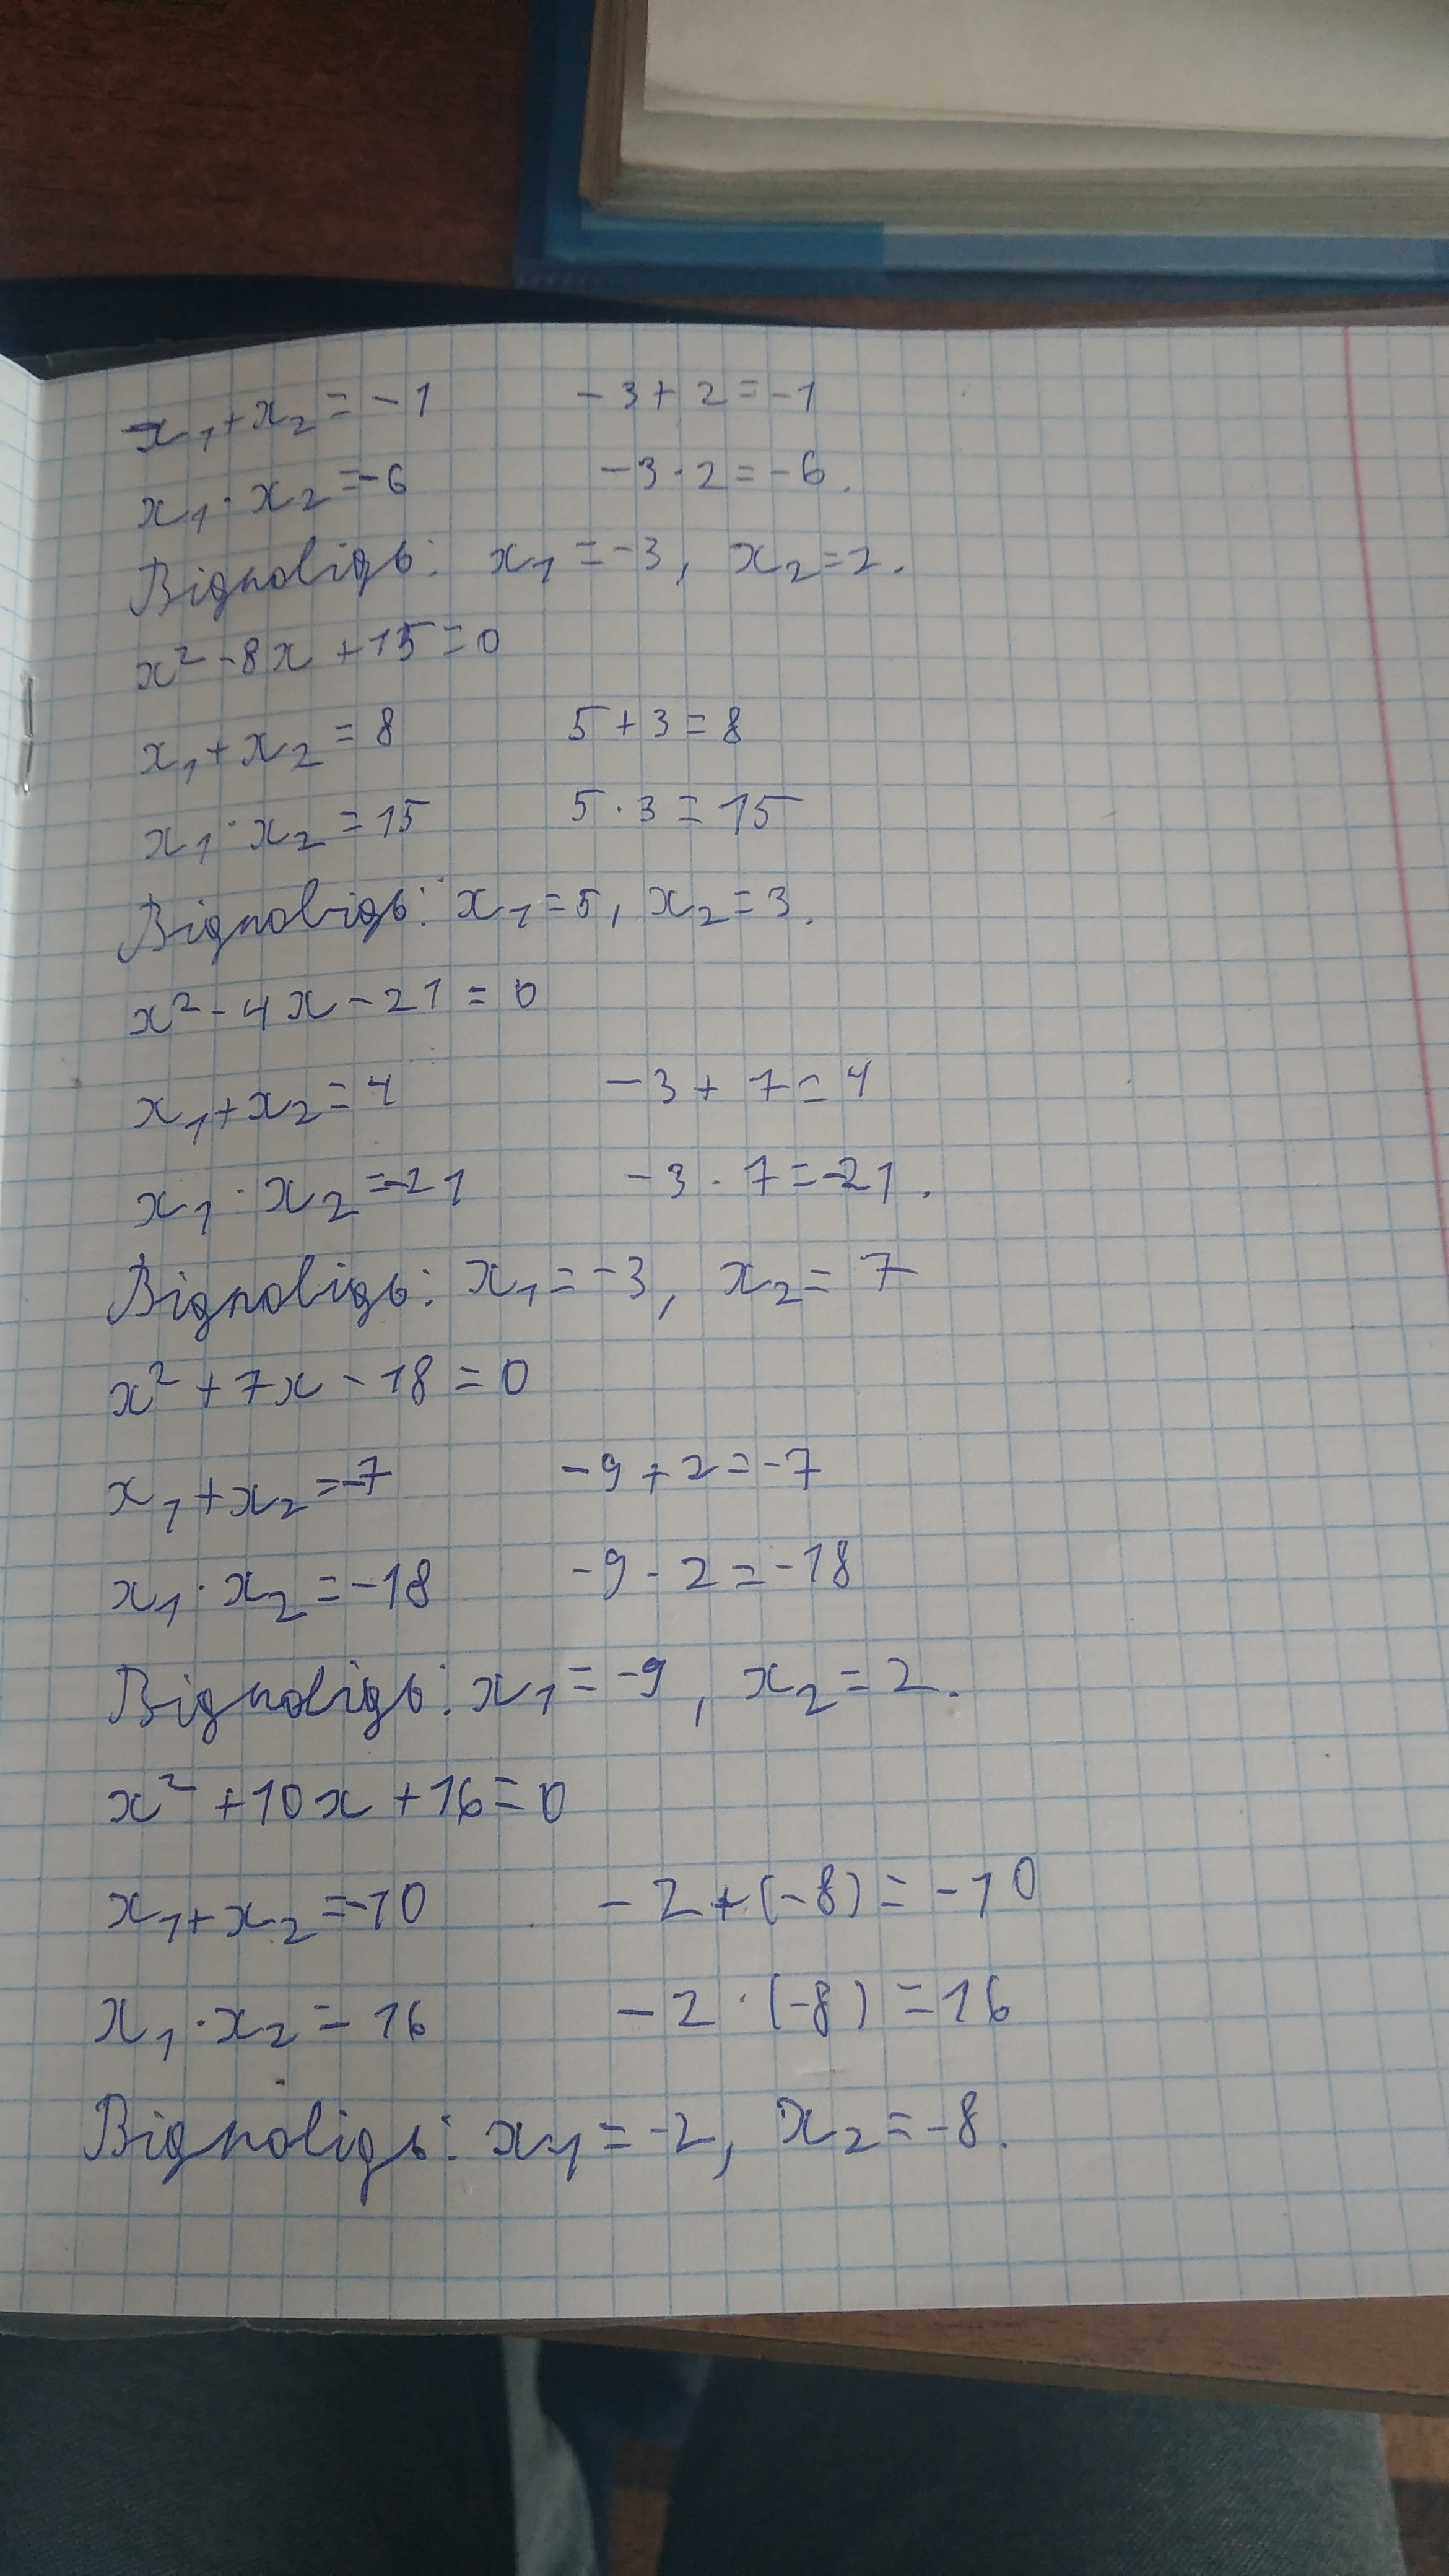 x₁+x₂=-1 -3+2=-1
x₁·x₂=-6 -3·2=-6.
Відповідь: x₁=-3, x₂=2.
x²-8x+15=0
x₁+x₂=8 5+3=8
x₁·x₂=15 5·3=15
Відповідь: x₁=5, x₂=3.
x²-4x-21=0
x₁+x₂=4 -3+7=4
x₁·x₂=-21 -3·7=-21.
Відповідь: x₁=-3, x₂=7
x²+7x-18=0
x₁+x₂=-7 -9+2=-7
x₁·x₂=-18 -9·2=-18
Відповідь: x₁=-9, x₂=2.
x²+10x+16=0
x₁+x₂=-10 -2+(-8)=-10
x₁·x₂=16 -2·(-8)=16
Відповідь: x₁=-2, x₂=-8.